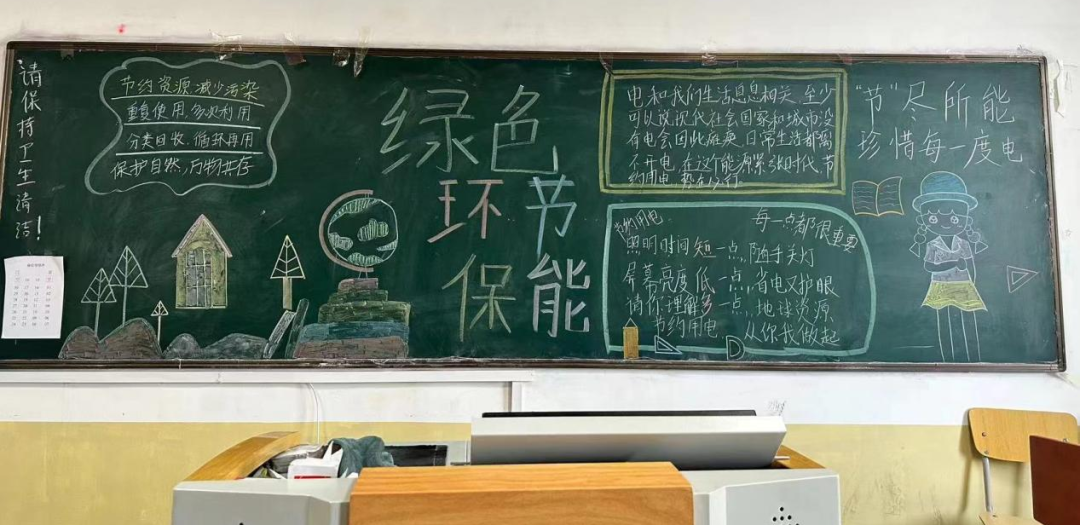 请保持卫生清洁！
节约资源 减少污染
重复使用，多次利用
分类回收，循环再用
保护自然，万物共存
绿色
环节
保能
电和我们生活息息相关，至少
可以说现代社会国家和城市没
有电会回收瘫痪，日常生活都离
不开电，在这个能源紧张时代，节
约用电，势在必行
节约用电
每一点都很重要
照明时间短一点，随手关灯
屏幕亮度低一点，省电又护眼
请你理解多一点，地球资源
节约用电 从你我做起
“节”尽所能
珍惜每一度电